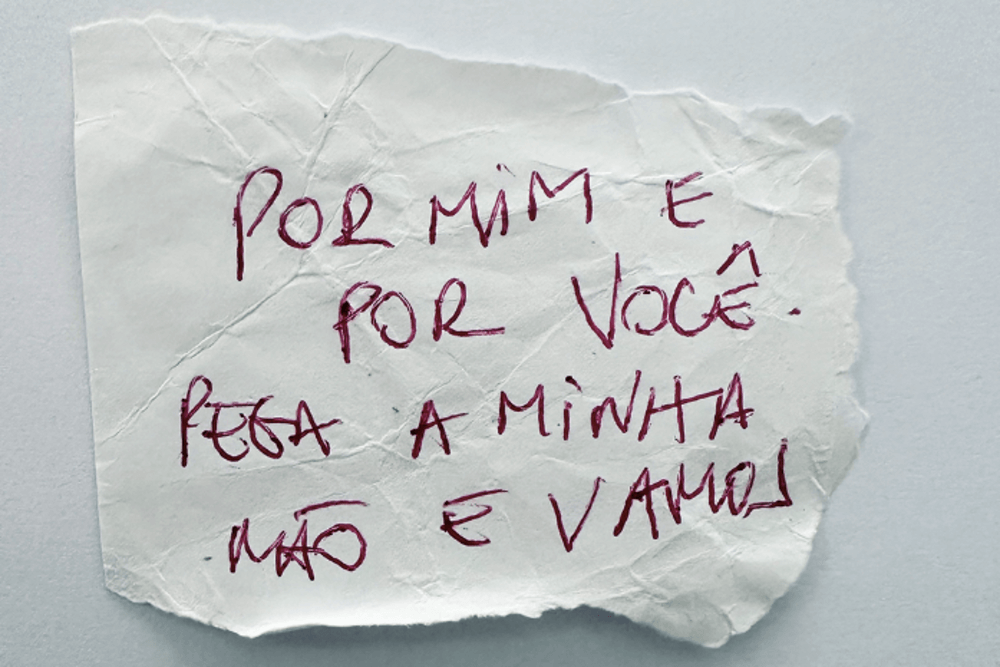 POR MIM E
POR VOCÊ.
PEGA A MINHA
MÃO E VAMOS